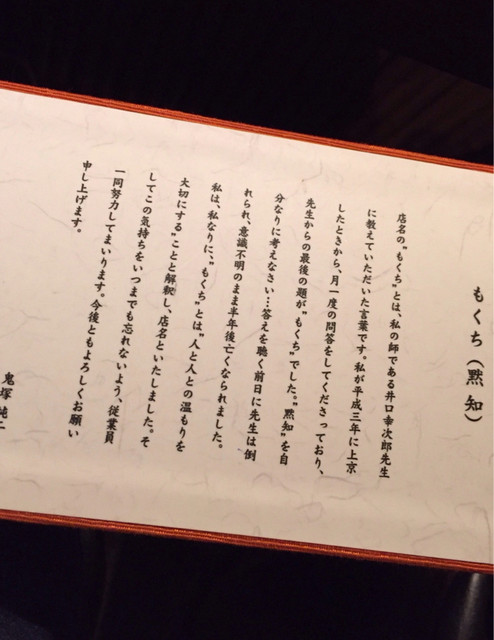 もくち（黙知）
店名の"もくち"とは、私の師である井口幸次郎先生
に教えていただいた言葉です。私が平成三年に上京
したときから、月一度の問答をしてくださっており、
先生からの最後の題が"もくち"でした。"黙知"を自
分なりに考えなさい…答えを聴く前日に先生は倒
れられ、意識不明のまま半年後亡くなられました。
私は、私なりに、"もくち"とは"人と人との温もりを
大切にする"ことと解釈し、店名といたしました。そ
してこの気持ちをいつまでも忘れないよう、従業員
一同努力してまいります。今後ともよろしくお願い
申し上げます。
鬼塚純二